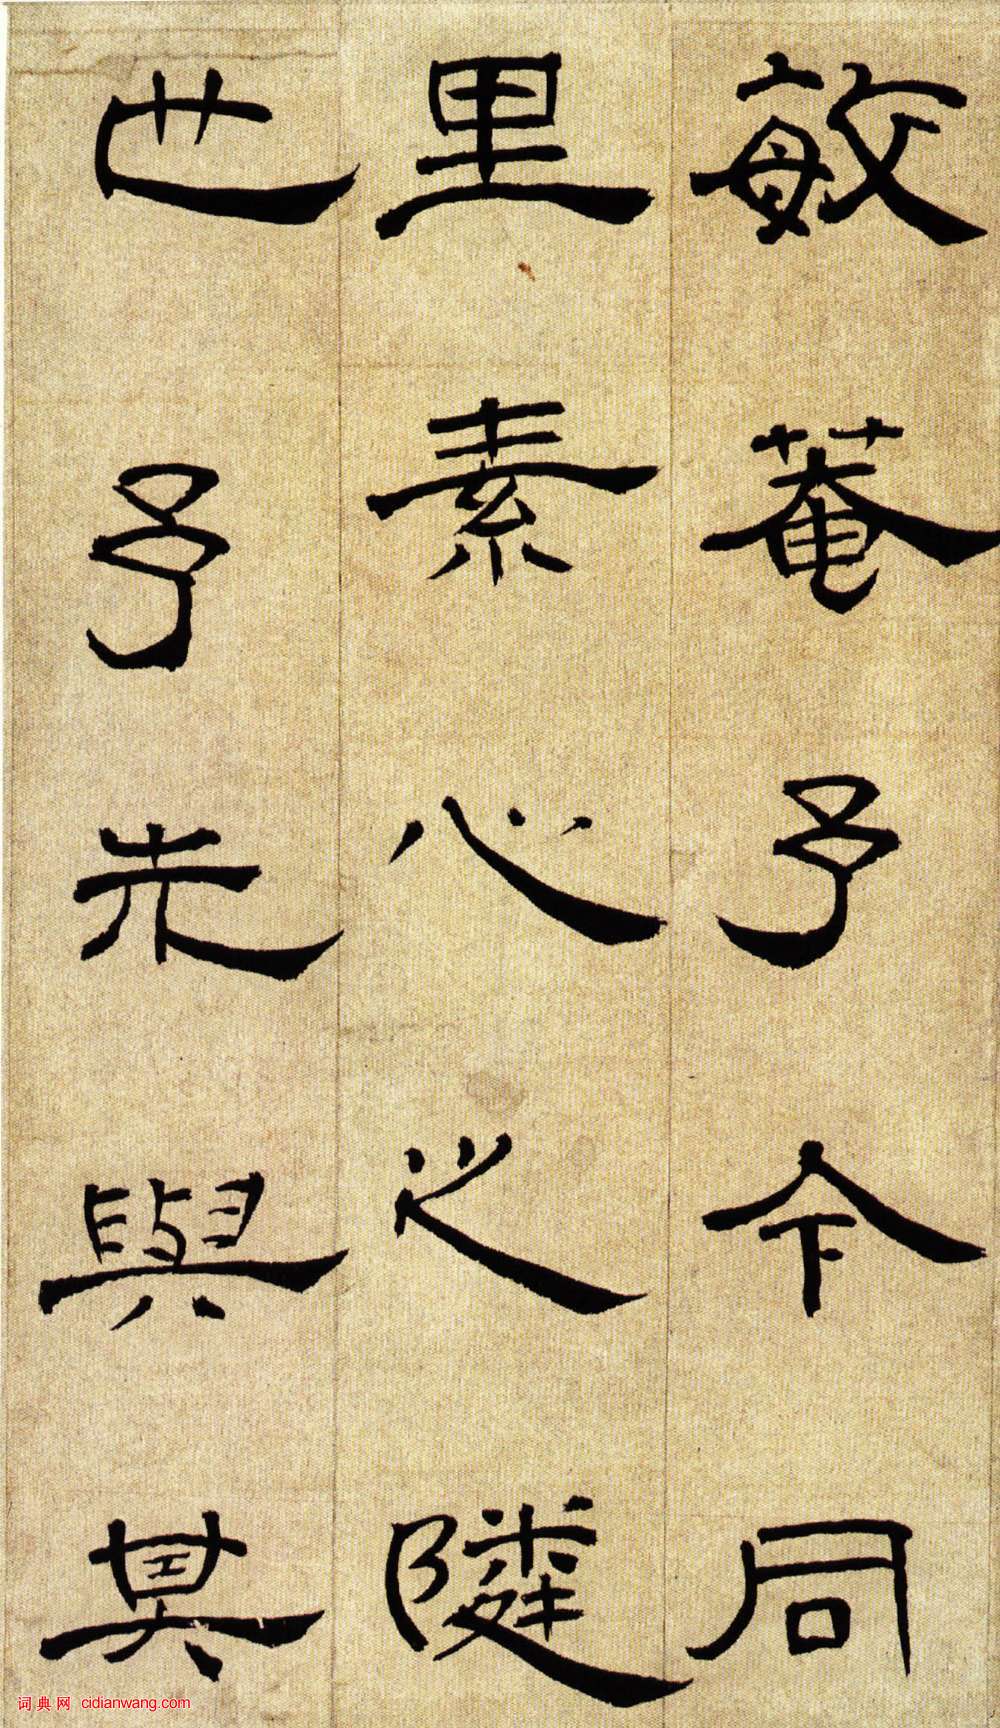 敏菴予今同
里素心之隣
世予先與其
词典网 cidianwang.com